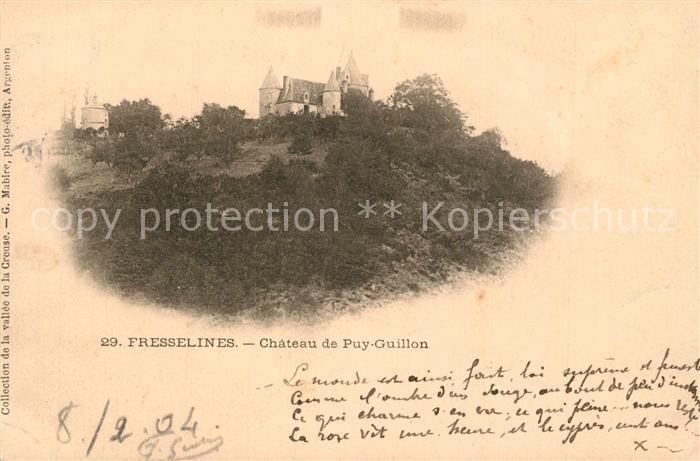 Collection de la vallée de la Creuse. — G. Mabire, photo-édit., Argenton
copy protection ** Kopierschutz
29. FRESSELINES. — Château de Puy-Guillon
Le monde est ainsi fait, loi suprême et funeste
Comme l'ombre d'un songe, au bout de peu d'instants
Ce qui charme s'en va, ce qui fait peine... nous reste
La rose vit une heure, et le cyprès, cent ans
x
8/2.04